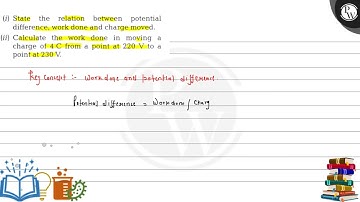 (i) State the relation between potential
difference, work done and charge moved.
(ii) Calculate the work done in moving a
charge of 4 C from a point at 220 V to a
point at 230 V.
Key Concept :- Work done and potential difference.
Potential difference = Work done / Charg